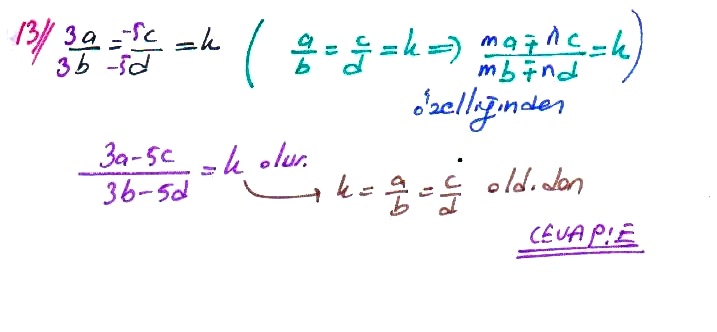 13// 3a/3b = -5c/-5d = k ( a/b = c/d = k ⇒ ma∓nc/mb∓nd = k )
özelliğinden
3a-5c/3b-5d = k olur.
→ k = a/b = c/d old.dan
CEVAP:E